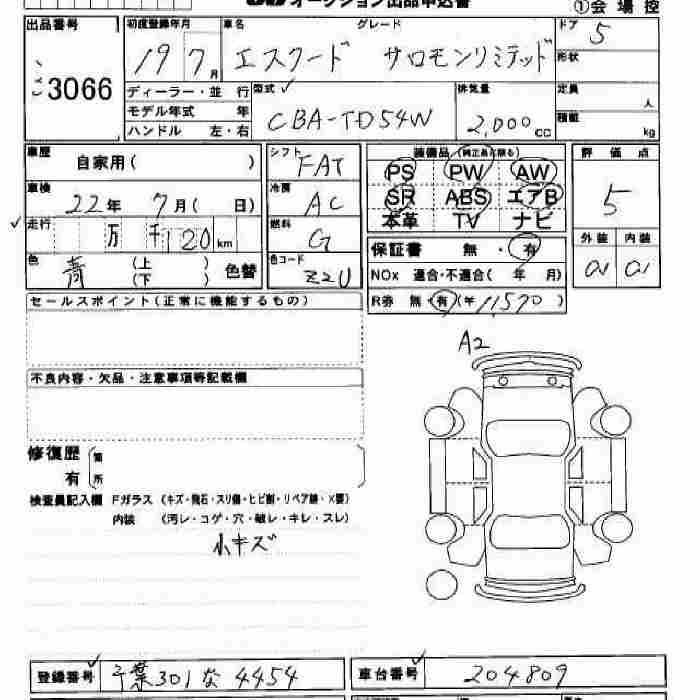 オークション出品申込書
①会場控
出品番号 初度登録年月 車名 グレード ドア 5
3066 19 7月 エスクード サロモンリミテッド 形状
ディーラー・並行 型式 排気量 定員 人
モデル年式 年 CBA-TD54W 2,000cc 積載 kg
ハンドル 左・右
車歴 自家用( ) シフト FAT 装備品(純正品に限る) 評価点
PS PW AW 5
車検 22年 7月( 日) 冷房 AC SR ABS エアB
走行 万 千 120km 燃料 G 本革 TV ナビ 外装 内装
保証書 無・有
色 青 (上 ) (下 ) 色替 色コード Z2U NOx 適合・不適合( 年 月)
R券 無・有(¥11,570)
セールスポイント(正常に機能するもの)
A2
不良内容・欠品・注意事項等記載欄
修復歴 箇
有 所
検査員記入欄 Fガラス (キズ・飛石・スリ傷・ヒビ割・リペア跡・X要)
内装 (汚レ・コゲ・穴・破レ・キレ・スレ)
小キズ
登録番号 千葉301な4454 車台番号 204809